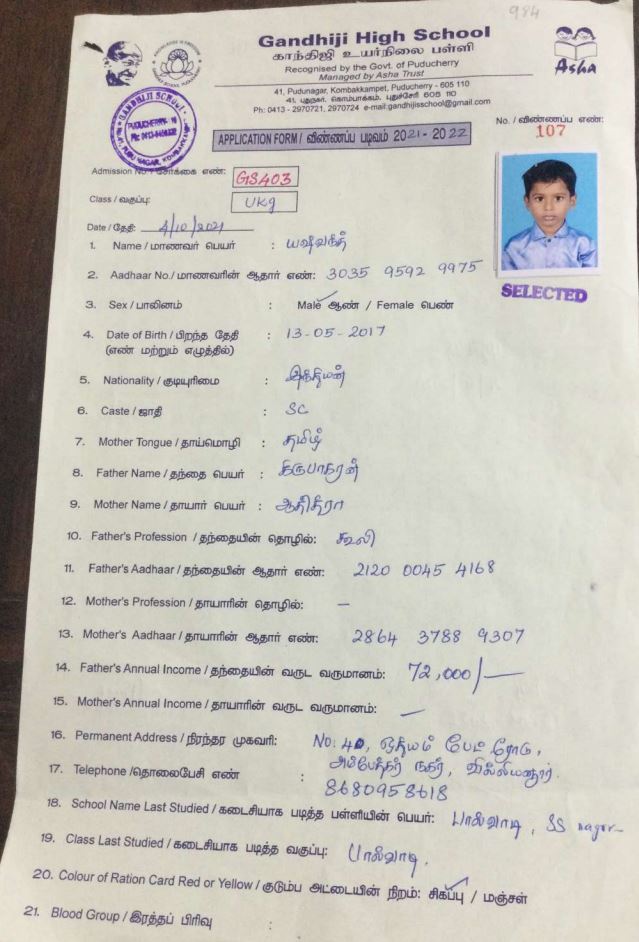 984
Gandhiji High School
காந்திஜி உயர்நிலை பள்ளி
Recognised by the Govt. of Puducherry
Managed by Asha Trust
41, Pudunagar, Kombakkampet, Puducherry - 605 110
41, புதுநகர், கொம்பாக்கம், புதுச்சேரி 605 110
Ph: 0413 - 2970721, 2970724 e-mail:gandhijisschool@gmail.com
Asha
GANDHIJI SCHOOL
PUDUCHERRY
APPLICATION FORM / விண்ணப்ப படிவம் 2021 - 2022
No. / விண்ணப்ப எண்:
107
Admission No. / சேர்க்கை எண்: GS403
Class / வகுப்பு: UKg
Date / தேதி: 4/10/2021
SELECTED
1. Name / மாணவர் பெயர் : யஷ்வந்த்
2. Aadhaar No./ மாணவரின் ஆதார் எண்: 3035 9592 9975
3. Sex / பாலினம் : Male ஆண் / Female பெண்
4. Date of Birth / பிறந்த தேதி : 13-05-2017
(எண் மற்றும் எழுத்தில்)
5. Nationality / குடியுரிமை : இந்தியன்
6. Caste / ஜாதி : SC
7. Mother Tongue / தாய்மொழி : தமிழ்
8. Father Name / தந்தை பெயர் : கிருபாகரன்
9. Mother Name / தாயார் பெயர் :
10. Father's Profession / தந்தையின் தொழில்: கூலி
11. Father's Aadhaar / தந்தையின் ஆதார் எண்: 2120 0045 4168
12. Mother's Profession / தாயாரின் தொழில்: –
13. Mother's Aadhaar / தாயாரின் ஆதார் எண்: 2864 3788 9307
14. Father's Annual Income / தந்தையின் வருட வருமானம்: 72,000/—
15. Mother's Annual Income / தாயாரின் வருட வருமானம்: –
16. Permanent Address / நிரந்தர முகவரி: No: 40, ஒதியம் பேட் ரோடு,
அம்பேத்கர் நகர், வில்லியனூர்.
17. Telephone /தொலைபேசி எண் : 8680958618
18. School Name Last Studied / கடைசியாக படித்த பள்ளியின் பெயர்: பால்வாடி, SS nagar
19. Class Last Studied / கடைசியாக படித்த வகுப்பு: பால்வாடி.
20. Colour of Ration Card Red or Yellow / குடும்ப அட்டையின் நிறம்: சிகப்பு / மஞ்சள்
21. Blood Group / இரத்தப் பிரிவு :